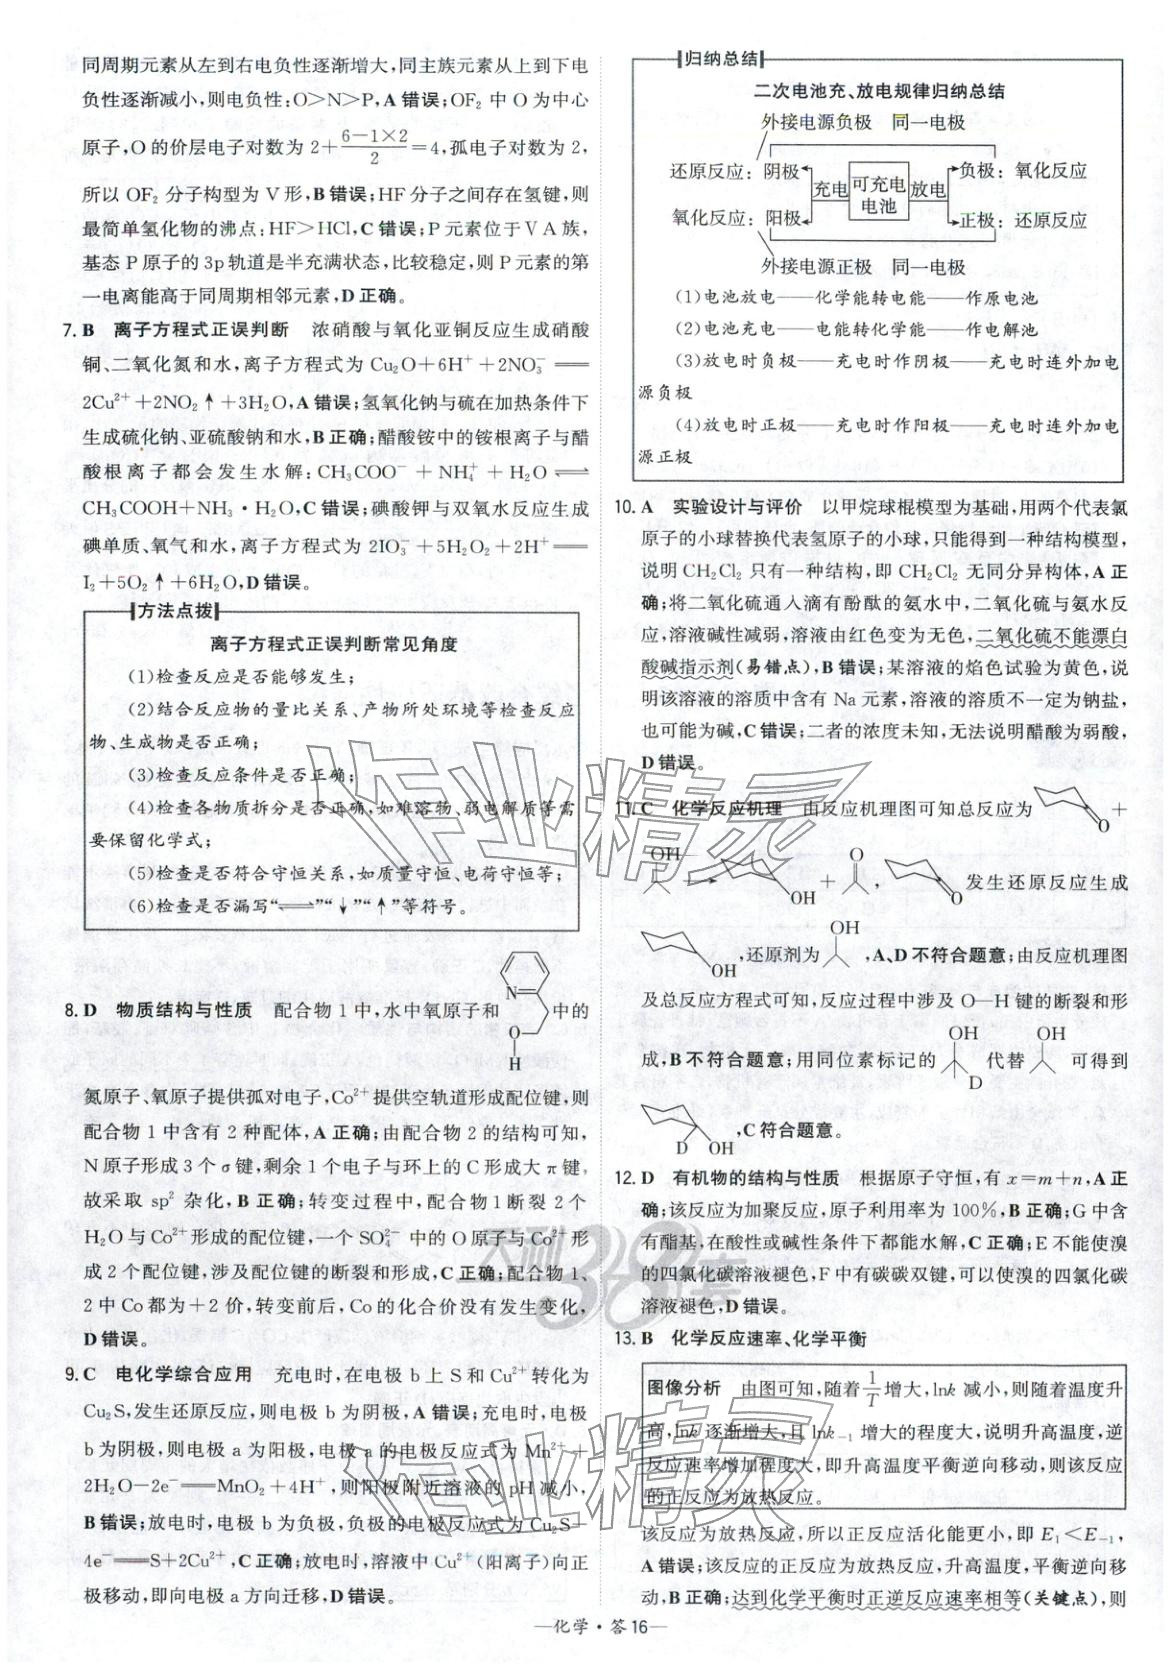 同周期元素从左到右电负性逐渐增大,同主族元素从上到下电
负性逐渐减小,则电负性:O>N>P,A 错误;OF₂ 中 O 为中心
原子,O 的价层电子对数为 2+(6-1×2)/2=4,孤电子对数为 2,
所以 OF₂ 分子构型为 V 形,B 错误;HF 分子之间存在氢键,则
最简单氢化物的沸点:HF>HCl,C 错误;P 元素位于ⅤA 族,
基态 P 原子的 3p 轨道是半充满状态,比较稳定,则 P 元素的第
一电离能高于同周期相邻元素,D 正确。
7. B 离子方程式正误判断 浓硝酸与氧化亚铜反应生成硝酸
铜、二氧化氮和水,离子方程式为 Cu₂O+6H⁺+2NO₃⁻══
2Cu²⁺+2NO₂↑+3H₂O,A 错误;氢氧化钠与硫在加热条件下
生成硫化钠、亚硫酸钠和水,B 正确;醋酸铵中的铵根离子与醋
酸根离子都会发生水解:CH₃COO⁻+NH₄⁺+H₂O⇌
CH₃COOH+NH₃·H₂O,C 错误;碘酸钾与双氧水反应生成
碘单质、氧气和水,离子方程式为 2IO₃⁻+5H₂O₂+2H⁺══
I₂+5O₂↑+6H₂O,D 错误。
方法点拨
离子方程式正误判断常见角度
(1)检查反应是否能够发生;
(2)结合反应物的量比关系、产物所处环境等检查反应
物、生成物是否正确;
(3)检查反应条件是否正确;
(4)检查各物质拆分是否正确,如难溶物、弱电解质等需
要保留化学式;
(5)检查是否符合守恒关系,如质量守恒、电荷守恒等;
(6)检查是否漏写“⇌”“↓”“↑”等符号。
8. D 物质结构与性质 配合物 1 中,水中氧原子和 N O H 中的
氮原子、氧原子提供孤对电子,Co²⁺提供空轨道形成配位键,则
配合物 1 中含有 2 种配体,A 正确;由配合物 2 的结构可知,
N 原子形成 3 个 σ 键,剩余 1 个电子与环上的 C 形成大 π 键,
故采取 sp² 杂化,B 正确;转变过程中,配合物 1 断裂 2 个
H₂O 与 Co²⁺形成的配位键,一个 SO₄²⁻ 中的 O 原子与 Co²⁺形
成 2 个配位键,涉及配位键的断裂和形成,C 正确;配合物 1、
2 中 Co 都为+2 价,转变前后,Co 的化合价没有发生变化,
D 错误。
9. C 电化学综合应用 充电时,在电极 b 上 S 和 Cu²⁺转化为
Cu₂S,发生还原反应,则电极 b 为阴极,A 错误;充电时,电极
b 为阴极,则电极 a 为阳极,电极 a 的电极反应式为 Mn²⁺+
2H₂O-2e⁻══MnO₂+4H⁺,则阳极附近溶液的 pH 减小,
B 错误;放电时,电极 b 为负极,负极的电极反应式为 Cu₂S-
4e⁻══S+2Cu²⁺,C 正确;放电时,溶液中 Cu²⁺(阳离子)向正
极移动,即向电极 a 方向迁移,D 错误。
归纳总结
二次电池充、放电规律归纳总结
外接电源负极 同一电极
还原反应:阴极 充电 可充电电池 放电 负极:氧化反应
氧化反应:阳极 正极:还原反应
外接电源正极 同一电极
(1)电池放电——化学能转电能——作原电池
(2)电池充电——电能转化学能——作电解池
(3)放电时负极——充电时作阴极——充电时连外加电
源负极
(4)放电时正极——充电时作阳极——充电时连外加电
源正极
10. A 实验设计与评价 以甲烷球棍模型为基础,用两个代表氯
原子的小球替换代表氢原子的小球,只能得到一种结构模型,
说明 CH₂Cl₂ 只有一种结构,即 CH₂Cl₂ 无同分异构体,A 正
确;将二氧化硫通入滴有酚酞的氨水中,二氧化硫与氨水反
应,溶液碱性减弱,溶液由红色变为无色,二氧化硫不能漂白
酸碱指示剂(易错点),B 错误;某溶液的焰色试验为黄色,说
明该溶液的溶质中含有 Na 元素,溶液的溶质不一定为钠盐,
也可能为碱,C 错误;二者的浓度未知,无法说明醋酸为弱酸,
D 错误。
11. C 化学反应机理 由反应机理图可知总反应为 O +
OH → OH + O , O 发生还原反应生成
OH ,还原剂为 OH ,A、D 不符合题意;由反应机理图
及总反应方程式可知,反应过程中涉及 O—H 键的断裂和形
成,B 不符合题意;用同位素标记的 OH D 代替 OH 可得到
D OH ,C 符合题意。
12. D 有机物的结构与性质 根据原子守恒,有 x=m+n,A 正
确;该反应为加聚反应,原子利用率为 100%,B 正确;G 中含
有酯基,在酸性或碱性条件下都能水解,C 正确;E 不能使溴
的四氯化碳溶液褪色,F 中有碳碳双键,可以使溴的四氯化碳
溶液褪色,D 错误。
13. B 化学反应速率、化学平衡
图像分析 由图可知,随着 1/T 增大,lnk 减小,则随着温度升
高,lnk 逐渐增大,且 lnk₋₁ 增大的程度大,说明升高温度,逆
反应速率增加程度大,即升高温度平衡逆向移动,则该反应
的正反应为放热反应。
该反应为放热反应,所以正反应活化能更小,即 E₁<E₋₁,
A 错误;该反应的正反应为放热反应,升高温度,平衡逆向移
动,B 正确;达到化学平衡时正逆反应速率相等(关键点),则
—化学·答16—
作业精灵
天利38套
作业精灵